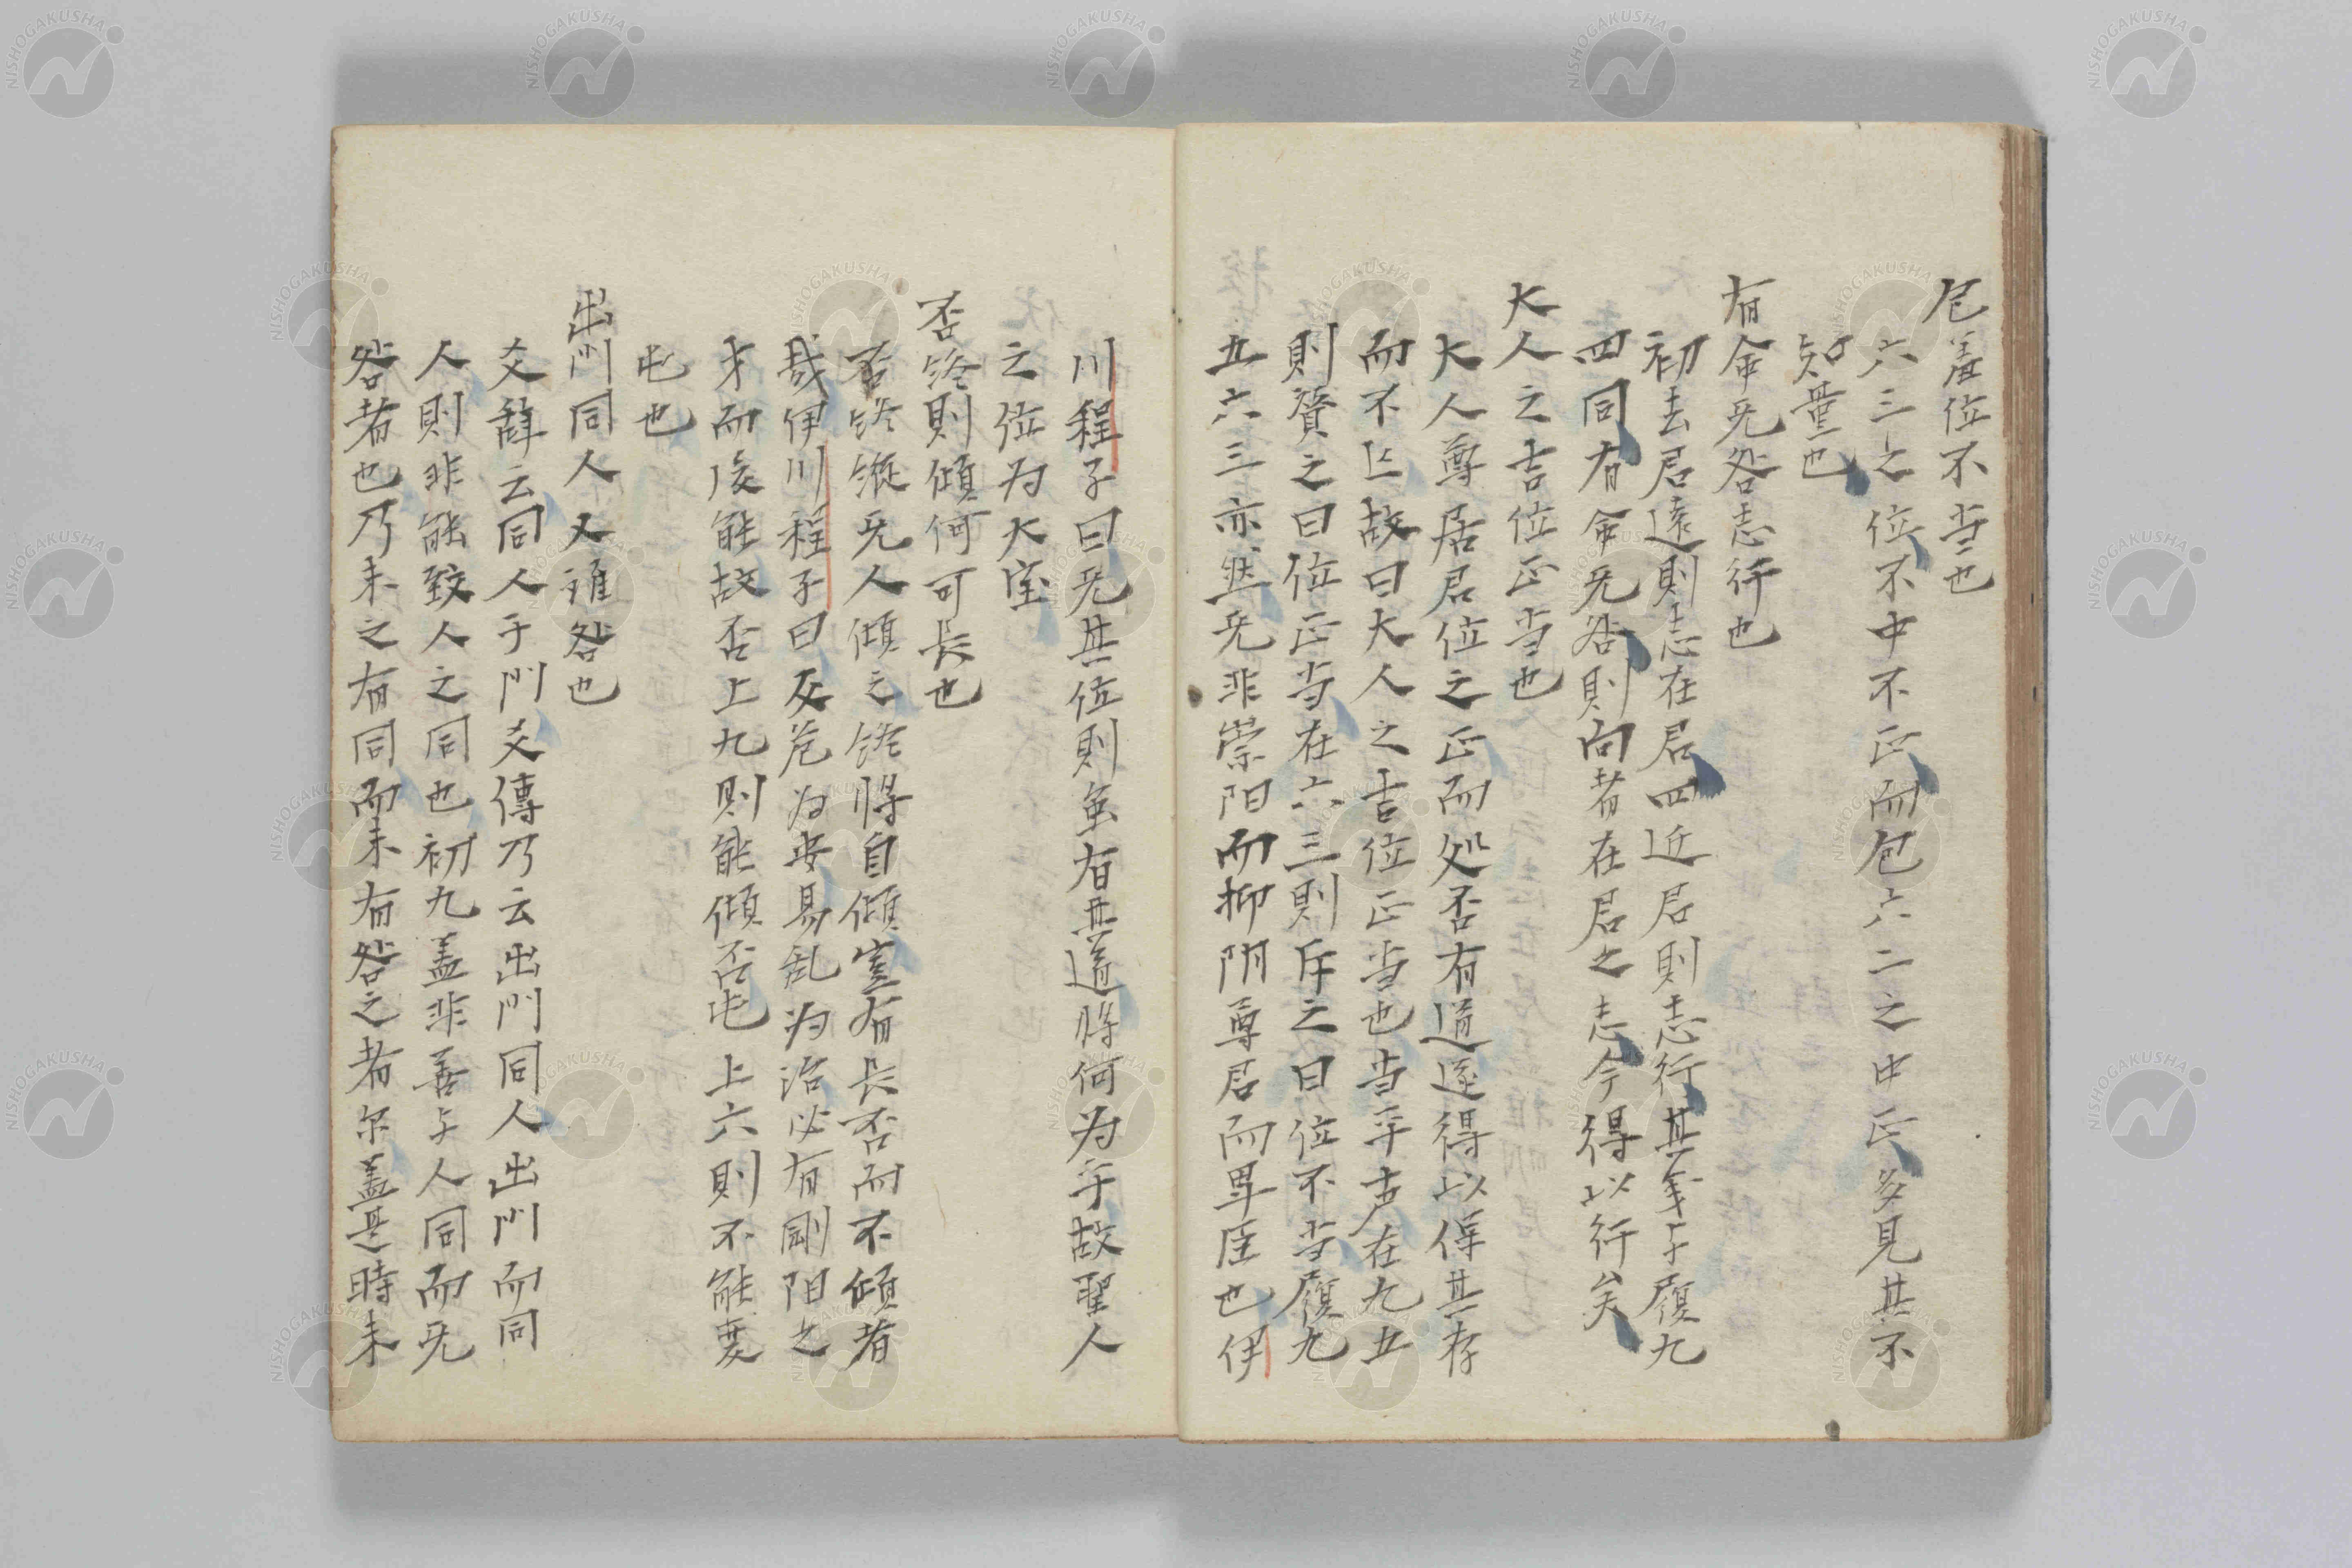 包羞位不当也
六三之位不中不正而包六二之中正多見其不
知量也
有命无咎志行也
初去君遠則志在君四近君則志行其筆与履九
四同有命无咎則向者在君之志今得以行矣
大人之吉位正当也
大人尊居君位之正而処否有道遂得以保其存
而不亡故曰大人之吉位正当也当平声在九五
則賛之曰位正当在六三則斥之曰位不当履九
五六三亦然无非崇阳而抑阴尊君而卑臣也伊
川程子曰无其位則虽有其道将何为乎故聖人
之位为大宝
否终則傾何可長也
否终縦无人傾之终将自傾室有长否而不傾者
哉伊川程子曰反危为安易乱为治必有剛阳之
才而后能故否上九則能傾否屯上六則不能変
屯也
出門同人又誰咎也
爻辞云同人于門爻傳乃云出門同人出門而同
人則非能致人之同也初九盖非善与人同而无
咎者也乃未之有同而未有咎之者尔盖是時未
NISHOGAKUSHA